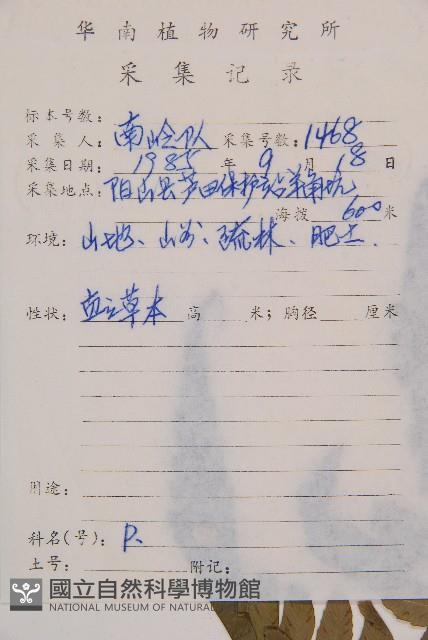 华南植物研究所
采集记录
标本号数:
采集人: 南岭队 采集号数: 1468
采集日期: 1985 年 9 月 18 日
采集地点: 阳山县芦田保护站羊角坑
海拨 600 米
环境: 山地、山谷、疏林、肥土.
性状: 直立草本 高 米; 胸径 厘米
用途:
科名(号): P.
土号: 附记:
國立自然科學博物館
NATIONAL MUSEUM OF NATURAL